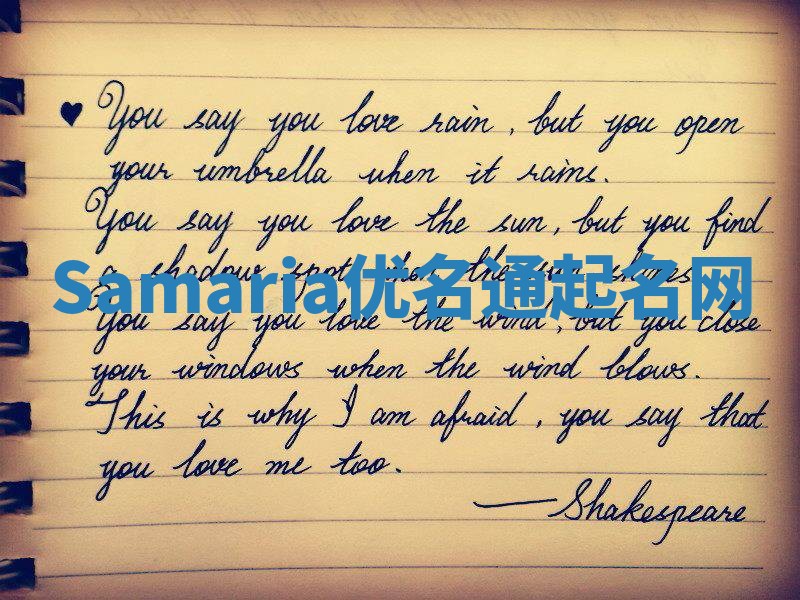 ♥ You say you love rain, but you open
your umbrella when it rains.
You say you love the sun, but you find
a shadow spot when the sun shines
Samaria优名通起名网
You say you love the wind, but you close
your windows when the wind blows.
This is why I am afraid, you say that
you love me too.
— Shakespeare